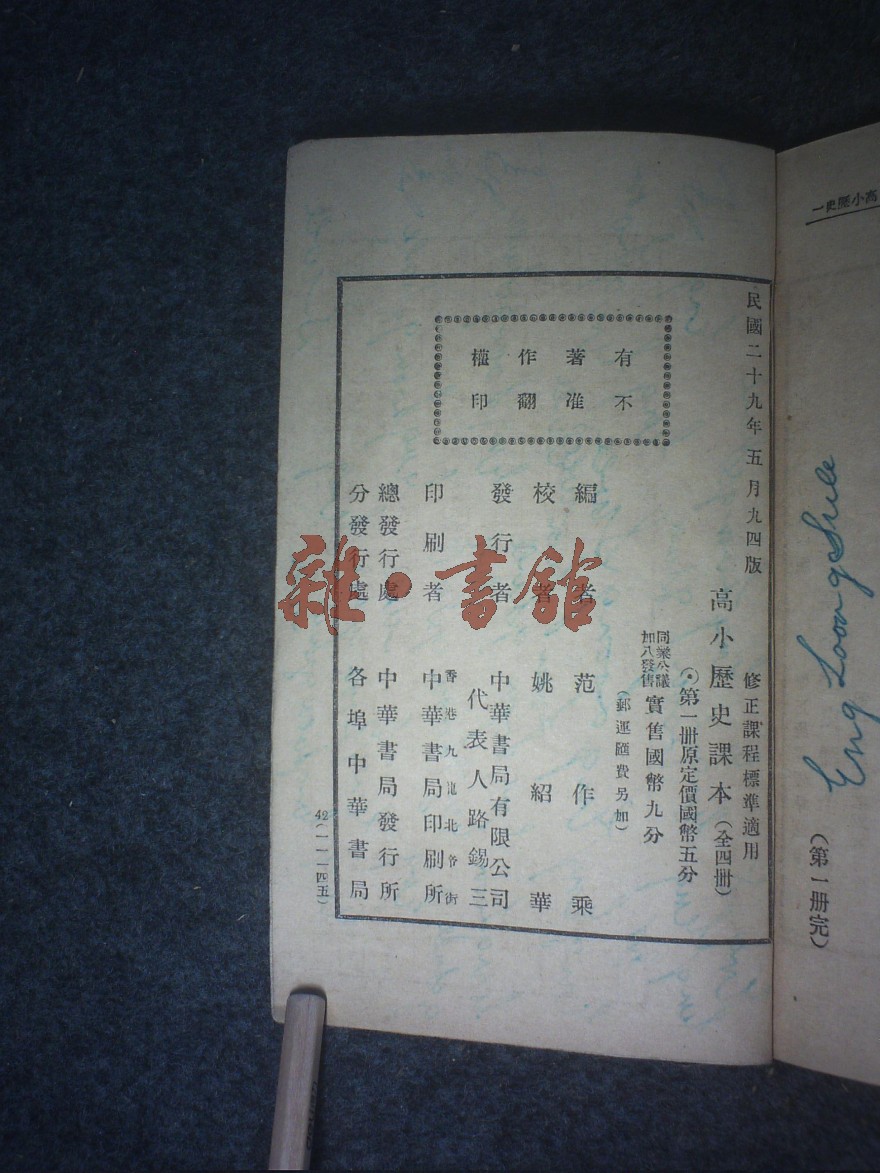 高小歷史一
Eng Loong Swee
(第一册完)
民國二十九年五月九四版
修正課程標準適用
高小歷史課本(全四册)
第一册原定價國幣五分
同業公議
加八發售
實售國幣九分
(郵運匯費另加)
有不
著准
作翻
權印
編者 范作乘
校者 姚紹華
發行者 中華書局有限公司
代表人路錫三
印刷者 香港九龍北帝街
中華書局印刷所
總發行處 中華書局發行所
分發行處 各埠中華書局
42(一一一四五)
雜·書館